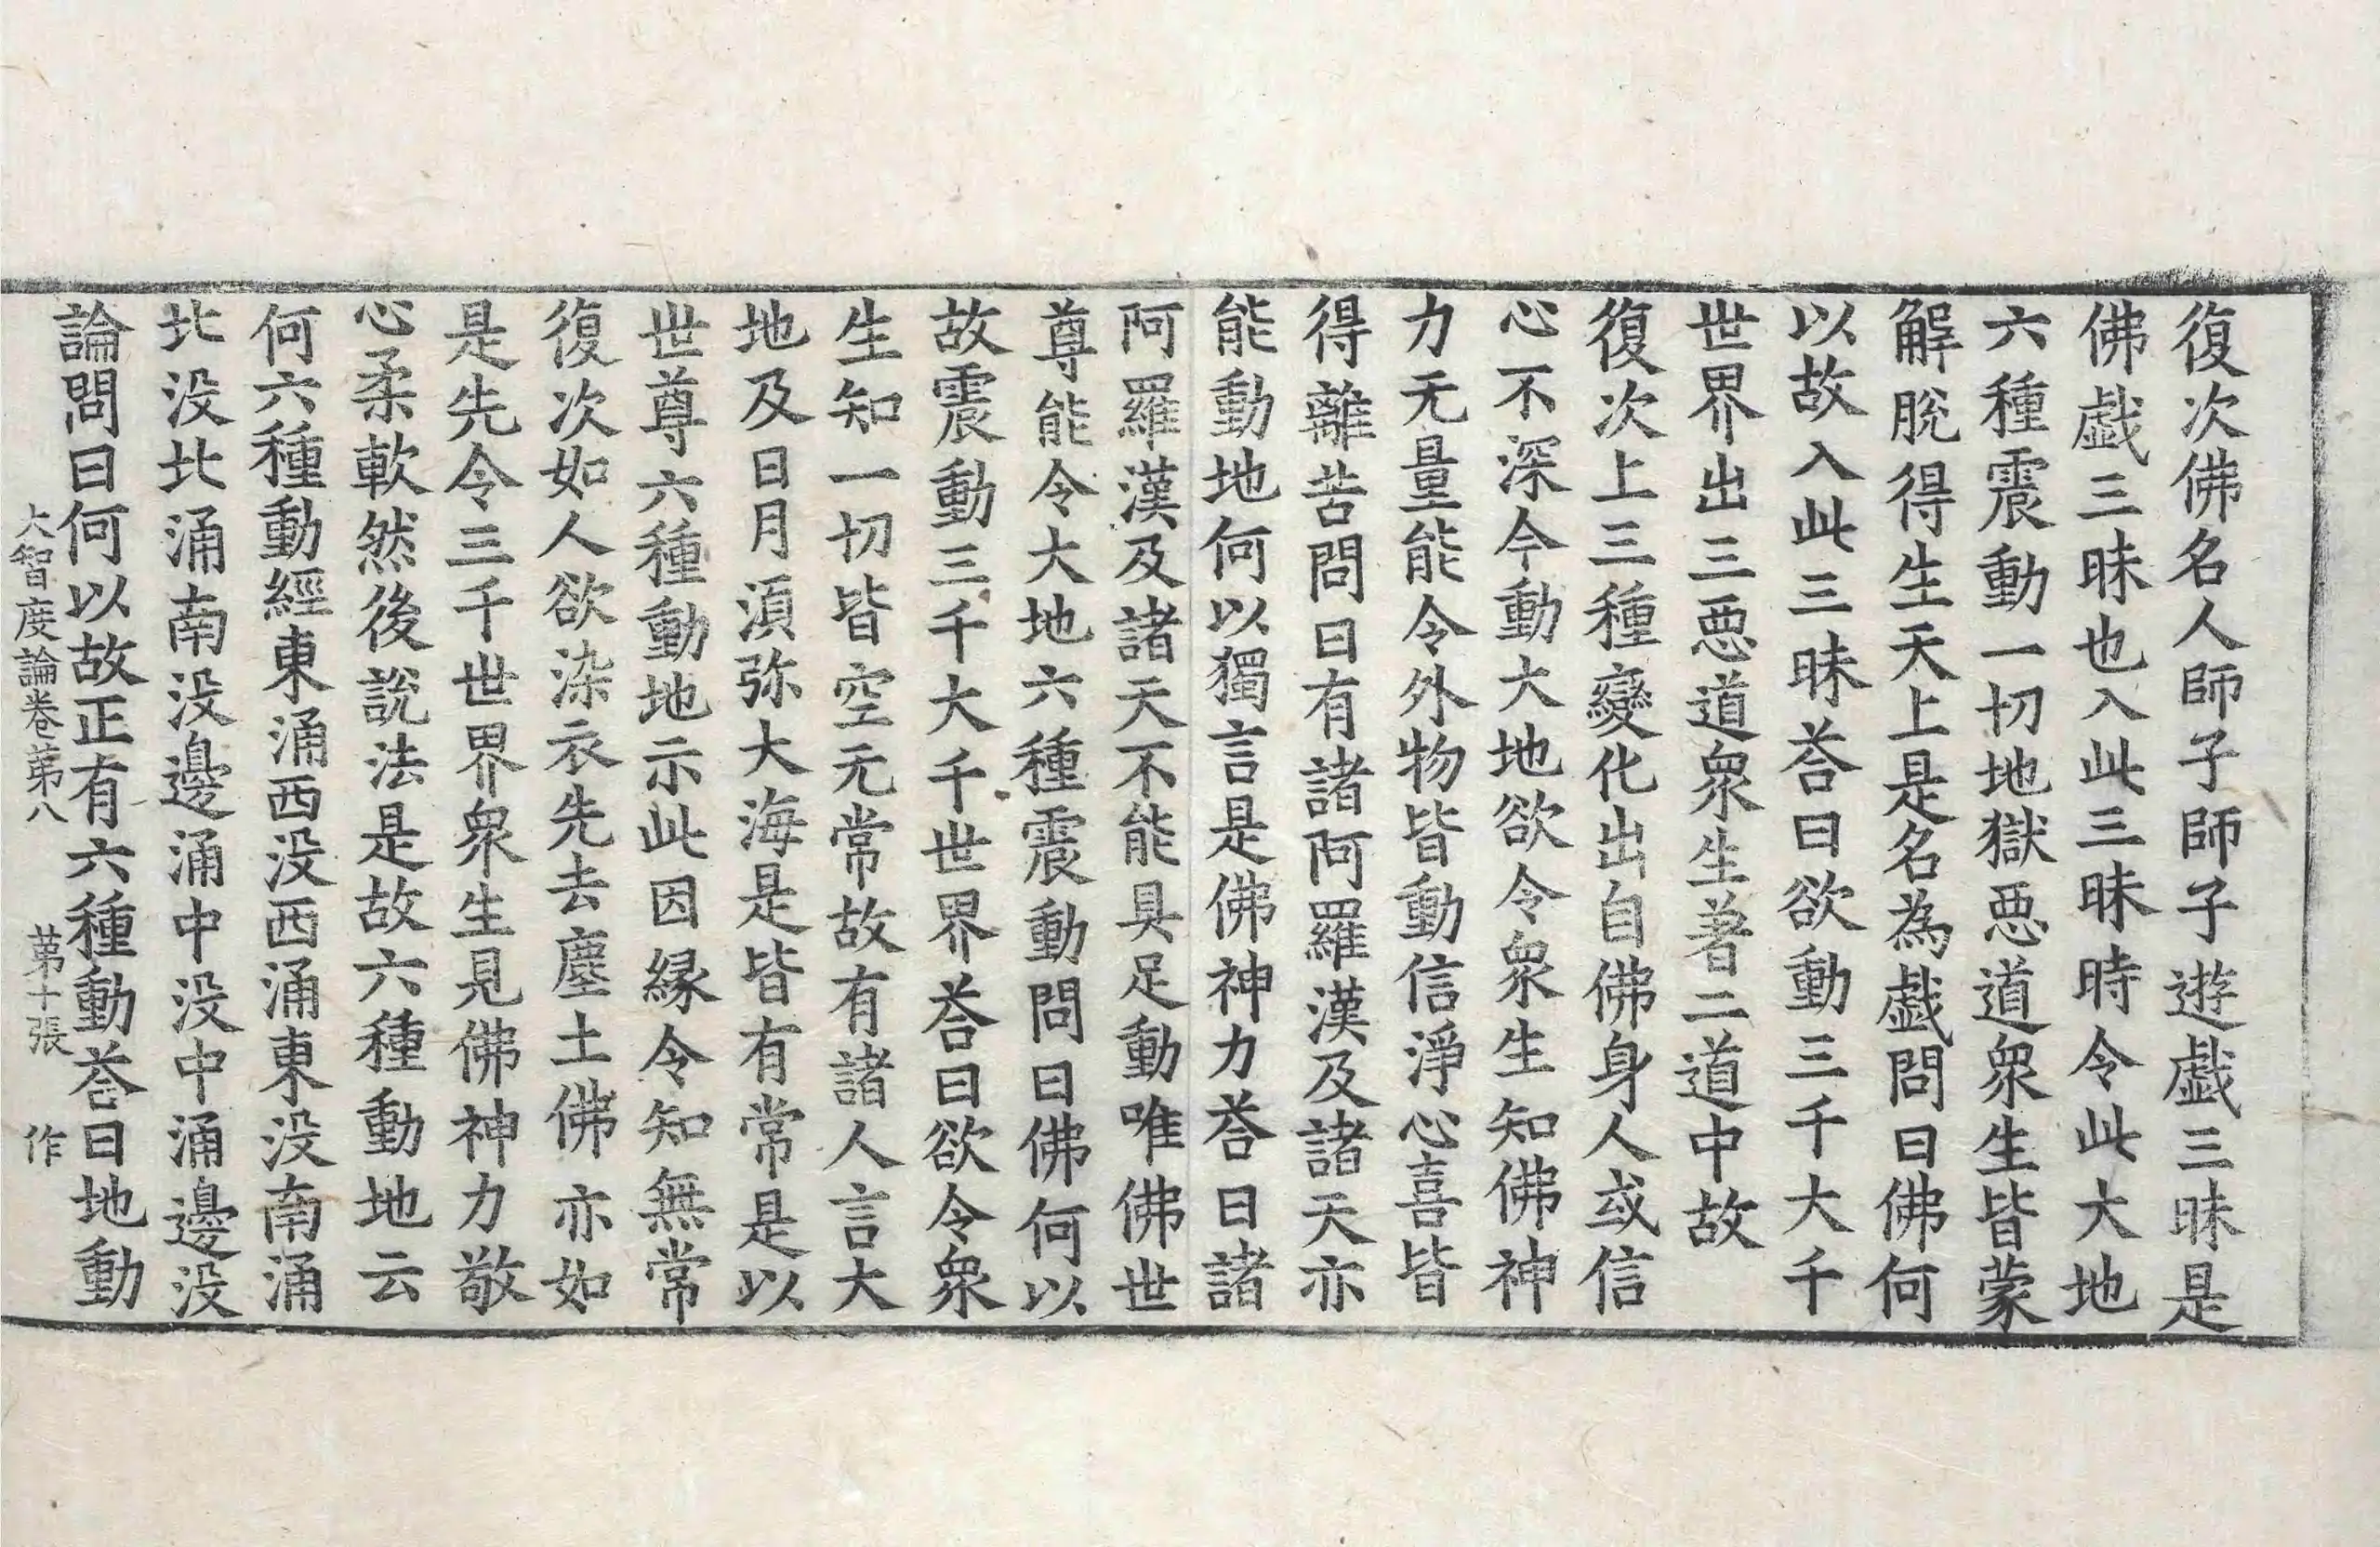 復次佛名人師子師子遊戱三昧是
佛戱三昧也入此三昧時令此大地
六種震動一切地獄惡道衆生皆蒙
解脫得生天上是名為戱問曰佛何
以故入此三昧荅曰欲動三千大千
世界出三惡道衆生著二道中故
復次上三種變化出自佛身人或信
心不深今動大地欲令衆生知佛神
力无量能令外物皆動信淨心喜皆
得離苦問曰有諸阿羅漢及諸天亦
能動地何以獨言是佛神力荅曰諸
阿羅漢及諸天不能具足動唯佛世
尊能令大地六種震動問曰佛何以
故震動三千大千世界荅曰欲令衆
生知一切皆空无常故有諸人言大
地及日月湏弥大海是皆有常是以
世尊六種動地示此因縁令知無常
復次如人欲染衣先去塵土佛亦如
是先令三千世界衆生見佛神力敬
心柔軟然後說法是故六種動地云
何六種動經東涌西没西涌東没南涌
北没北涌南没邊涌中没中涌邊没
論問曰何以故正有六種動荅曰地動
大智度論卷苐八　苐十張　作